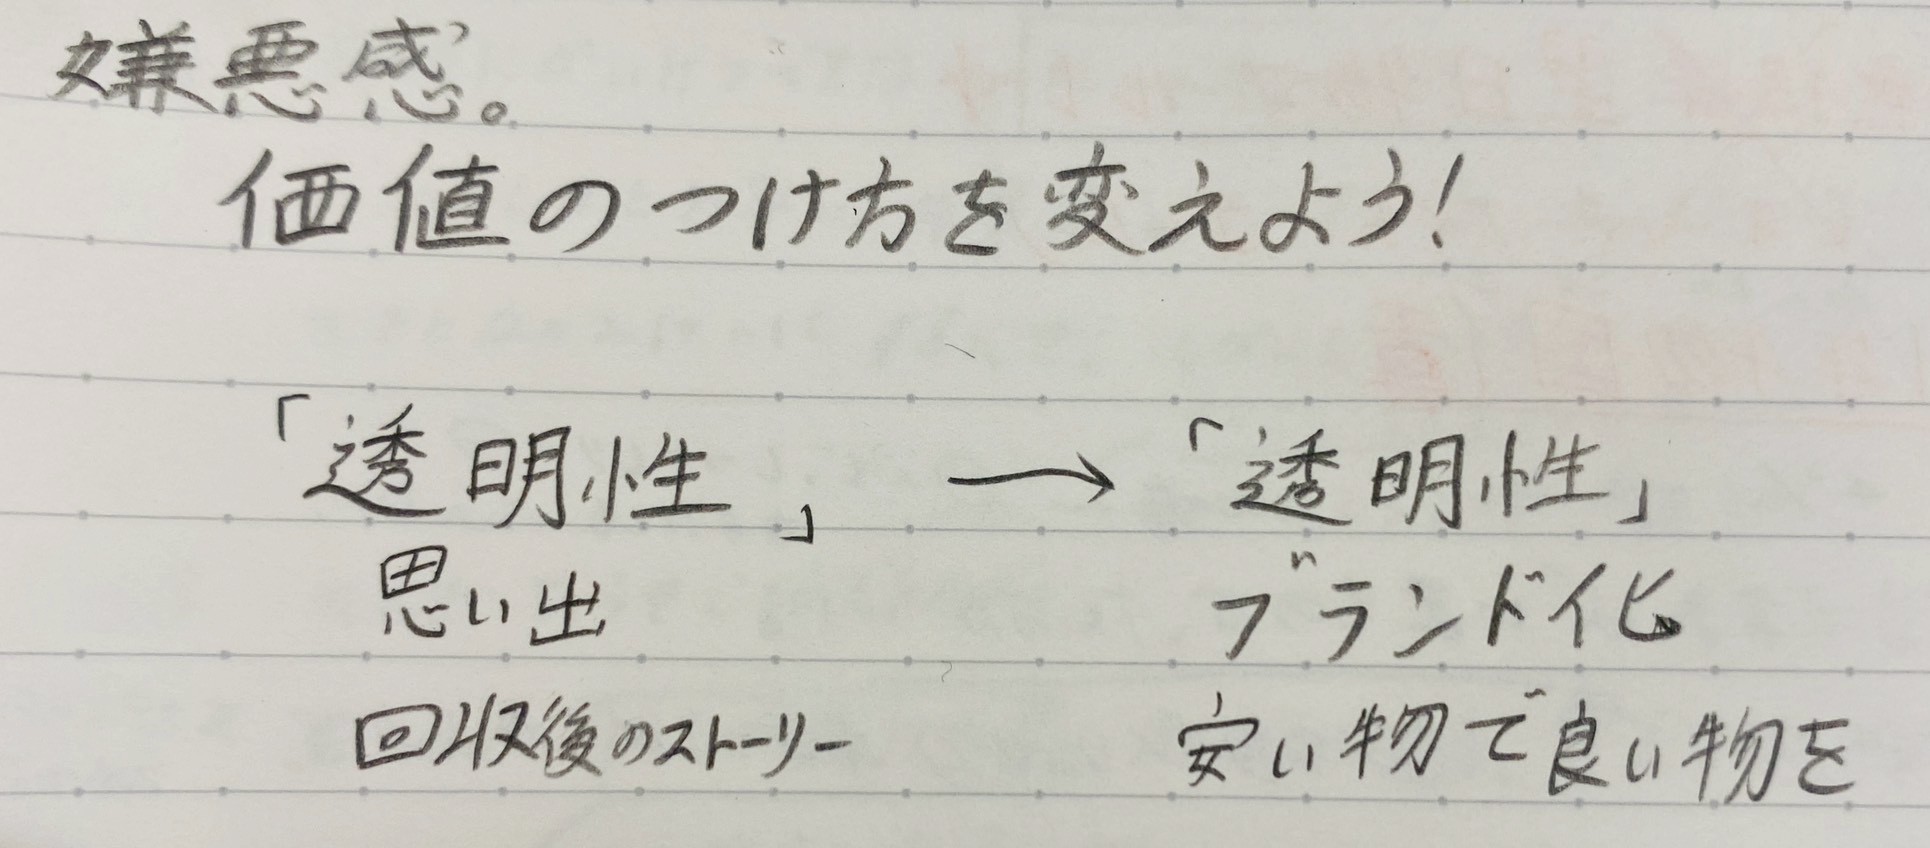 嫌悪感。
価値のつけ方を変えよう!
「透明性」 → 「透明性」
思い出 ブランド化
回収後のストーリー 安い物で良い物を